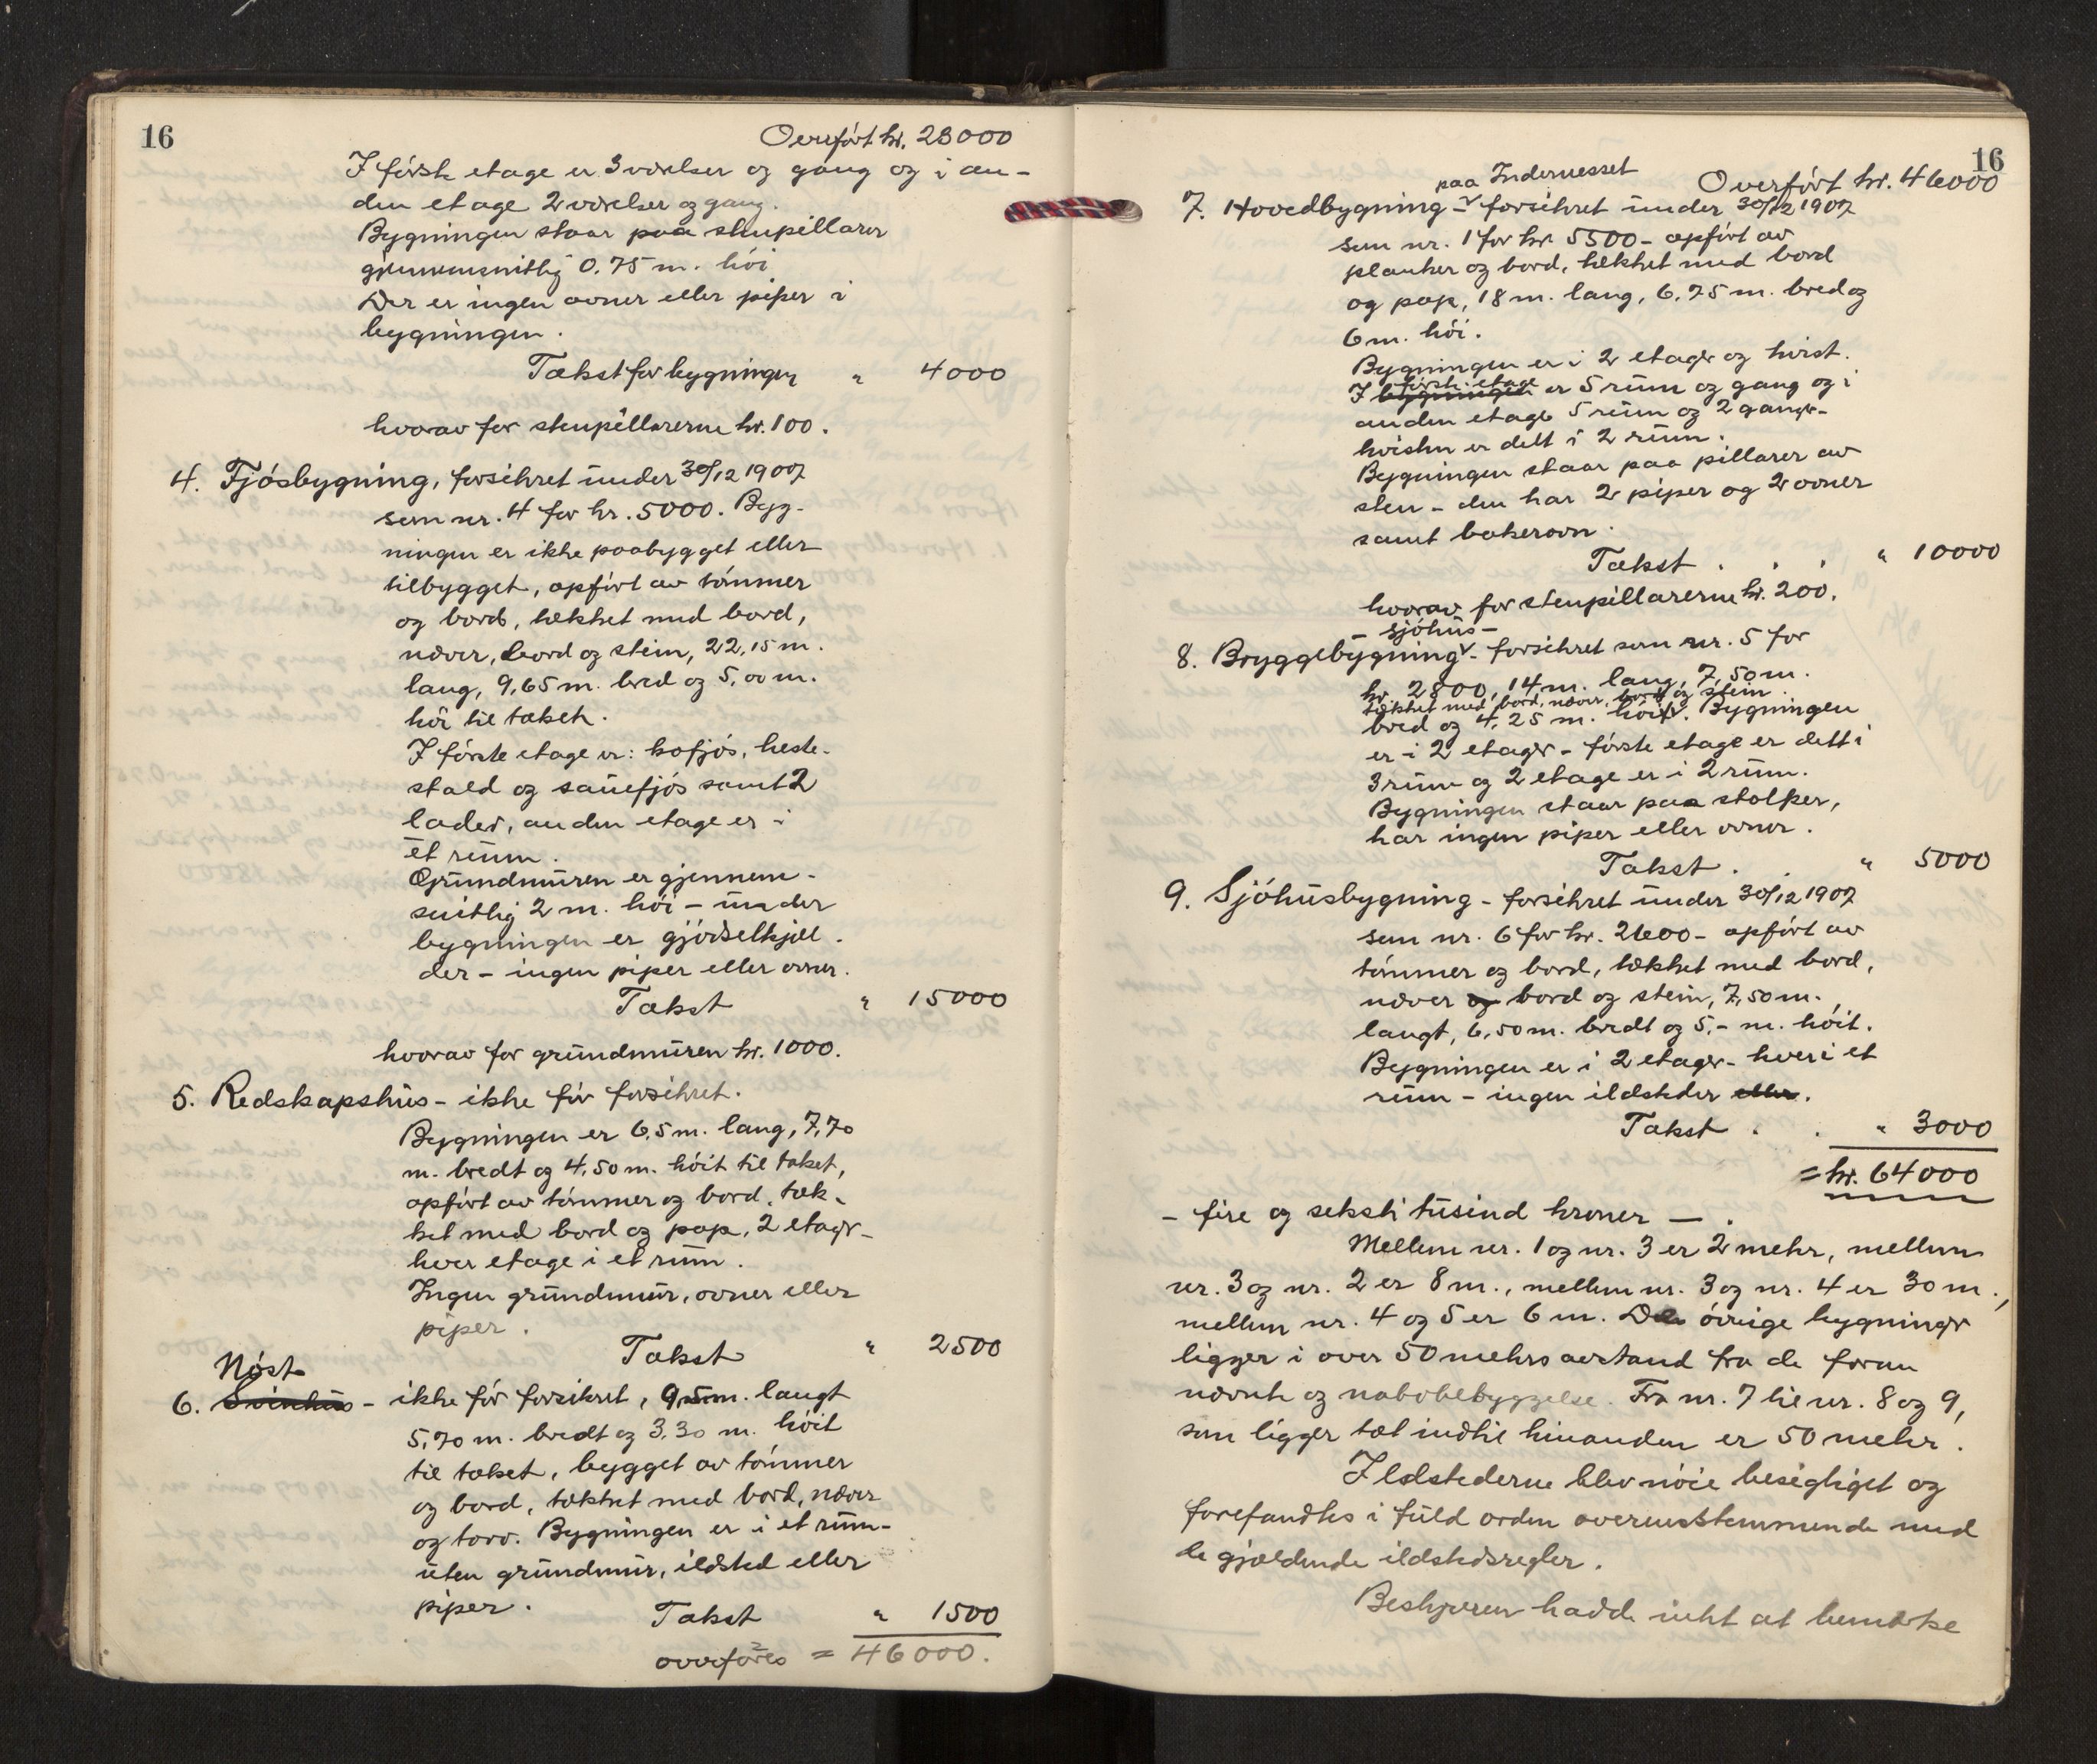 16
Overført kr. 23000
I første etage er 3 værelser og gang og i an-
den etage 2 værelser og gang.
Bygningen staar paa stenpillarer
gjennemsnitlig 0.75 m. høi
Der er ingen ovner eller piper i
bygningen.
Takst for bygningen " 4000
hvorav for stenpillarerne kr. 100.
4. Fjøsbygning, forsikret under 30/12 1907
som nr. 4 for kr. 5000. Byg-
ningen er ikke paabygget eller
tilbygget, opført av tømmer
og bord, tækket med bord,
næver, bord og stein, 22,15 m.
lang, 9,65 m. bred og 5,00 m.
høi til taket.
I første etage er: kofjøs, heste-
stald og sauefjøs samt 2
lader, anden etage er i
et rum.
Grundmuren er gjennem-
snitlig 2 m. høi - under
bygningen er gjødselkjell-
der - ingen piper eller ovner.
Takst " 15000
hvorav for grundmuren kr. 1000.
5. Redskapshus - ikke før forsikret.
Bygningen er 6,5 m. lang, 7,70
m. bredt og 4,50 m. høit til taket,
opført av tømmer og bord, tæk-
ket med bord og pap, 2 etager -
hver etage i et rum.
Ingen grundmur, ovner eller
piper.
Takst " 2500
Nøst
6. Svinhus - ikke før forsikret, 9,5 m. langt
5,70 m. bredt og 3,30 m. høit
til taket, bygget av tømmer
og bord, tækket med bord, næver
og torv. Bygningen er i et rum -
uten grundmur, ildsted eller
piper.
Takst " 1500
overføres = 46000.
16
Overført kr. 46000
paa Indernesset
7. Hovedbygning - forsikret under 30/12 1907
som nr. 1 for kr 5500 - opført av
planker og bord, tækket med bord
og pap, 18 m. lang, 6,75 m. bred og
6 m. høi.
Bygningen er i 2 etager og kvist.
første etage
I bygningen er 5 rum og gang og i
anden etage 5 rum og 2 gange -
kvisten er delt i 2 rum.
Bygningen staar paa pillarer av
sten - den har 2 piper og 2 ovner
samt bakerovn.
Takst . . . " 10000
hvorav for stenpillarerne kr. 200.
- sjøhus -
8. Bryggebygning - forsikret som nr. 5 for
kr. 2800, 14 m. lang, 7,50 m.
tækket med bord, næver, bord og stein
bred og 4,25 m. høit. Bygningen
er i 2 etager - første etage er delt i
3 rum og 2 etage er i 2 rum.
Bygningen staar paa stolper,
har ingen piper eller ovner.
Takst . . " 5000
9. Sjøhusbygning - forsikret under 30/12 1907
som nr. 6 for kr. 2600 - opført av
tømmer og bord, tækket med bord,
næver og bord og stein, 7,50 m.
langt, 6,50 m. bredt og 5,- m. høit.
Bygningen er i 2 etager - hver i et
rum - ingen ildsteder eller.
Takst . . " 3000
= kr. 64000
- fire og seksti tusind kroner - .
Mellem nr. 1 og nr. 3 er 2 meter, mellem
nr. 3 og nr. 2 er 8 m., mellem nr. 3 og nr. 4 er 30 m.,
mellem nr. 4 og 5 er 6 m. De øvrige bygninger
ligger i over 50 meters avstand fra de foran
nævnte og nabobebyggelse. Fra nr. 7 til nr. 8 og 9,
som ligger tæt indtil hinanden er 50 meter.
Ildstederne blev nøie besigtiget og
forefandtes i fuld orden overensstemmende med
de gjældende ildstedsregler.
Bestyreren hadde intet at bemerke